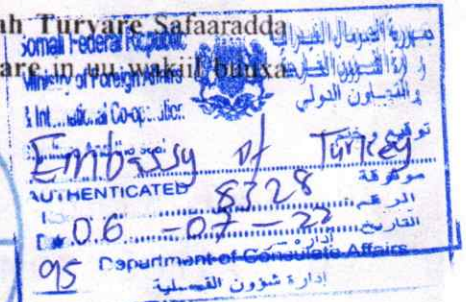 ah Turyare Safaaradda
are in uu wakiil buuxa
Somali Federal Republic
Ministry of Foreign Affairs
& International Co-operation
جمهورية الصومال الفيدرالية
وزارة الشؤون الخارجية
والتعاون الدولي
توقيع
Embassy of Turkey
AUTHENTICATED
موثوقة
8328
الرقم
06-07-22
التاريخ
95
Department of Consulate Affairs
إدارة شؤون القنصلية